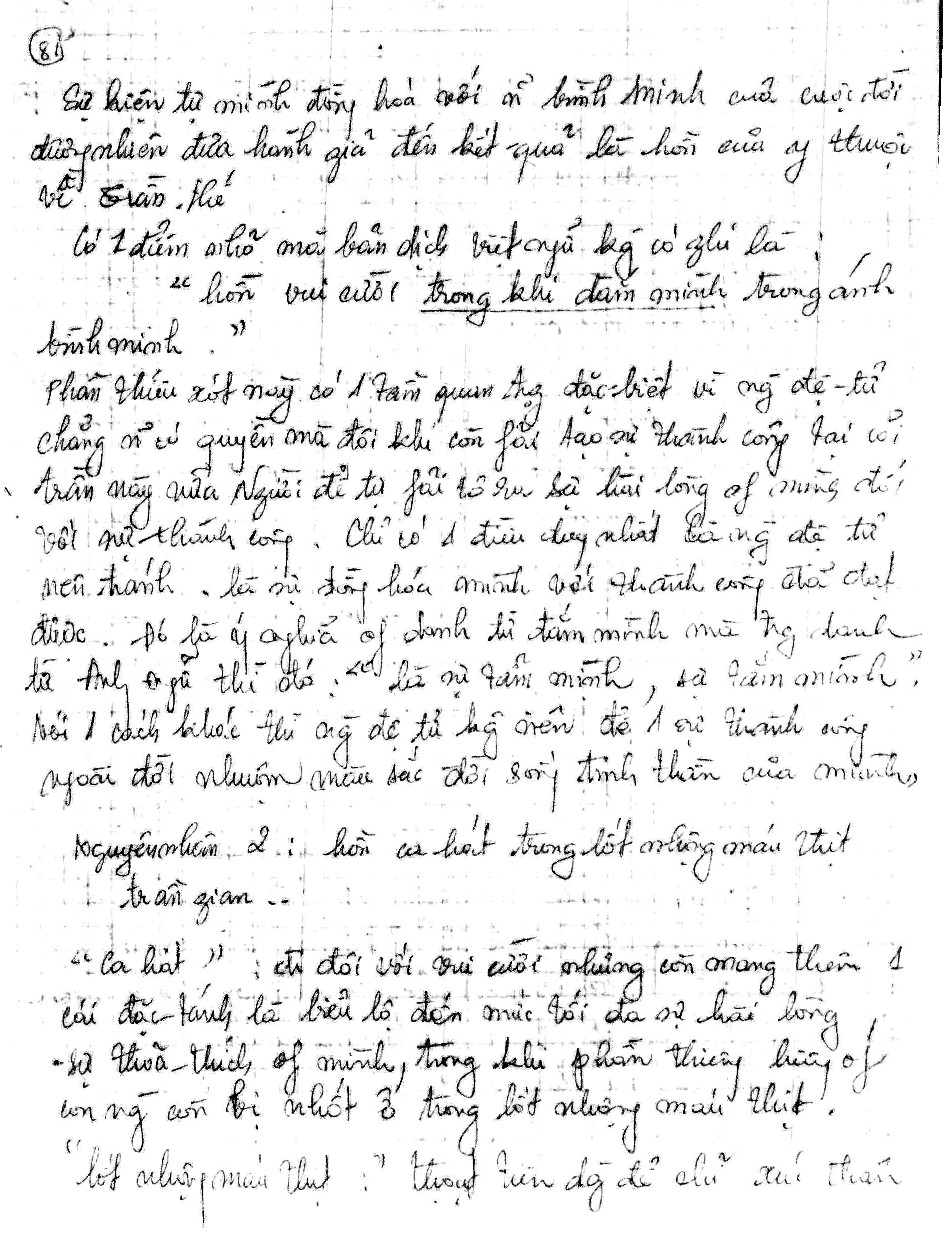 81
Sự hiện tự mình đồng hoà với n~ bình minh của cuộc đời
đương nhiên đưa hành giả đến kết-quả là hồn của y thuộc
về trần.thế
Có 1 điểm nhỏ mà bản dịch Việt ngữ kg có ghi là :
“ hồn vui cười trong khi đắm mình trong ánh
bình minh . ”
Phần thiếu xót này có 1 tầm quan trg đặc-biệt vì ng đệ-tử
chẳng n~ có quyền mà đôi khi còn fải tạo sự thành công tại cõi
trần này nữa Người đệ tử fải tỏ ra sự hài lòng of mình đối
với sự-thành công . Chỉ có 1 điều duy nhất là ng đệ tử
nên tránh . là sự đồng hóa mình với thành công đã đạt
được . Đó là ý nghĩa of danh từ tắm mình mà trg danh
từ Anh ngữ thì đó : “ là sự tắm mình , sự tắm mình ” .
Nói 1 cách khác thì ng đệ tử kg nên để 1 sự thành công
ngoài đời nhuộm màu sắc đời sống tinh thần của mình,,
Nguyên nhân 2 : hồn ca hát trong lốt nhộng máu thịt
trần gian ..
“ Ca hát ” : đi đôi với vui cười nhưng còn mang thêm 1
cái đặc-tánh là biểu lộ đến mức tối đa sự hài lòng ,
-sự thoả-thích of mình, trong khi phần thiêng liêng of
con ng còn bị nhốt ở trong lốt nhộng máu thịt .
“ lốt nhộng máu thịt : ” thoạt tiên dg để chỉ xác thân